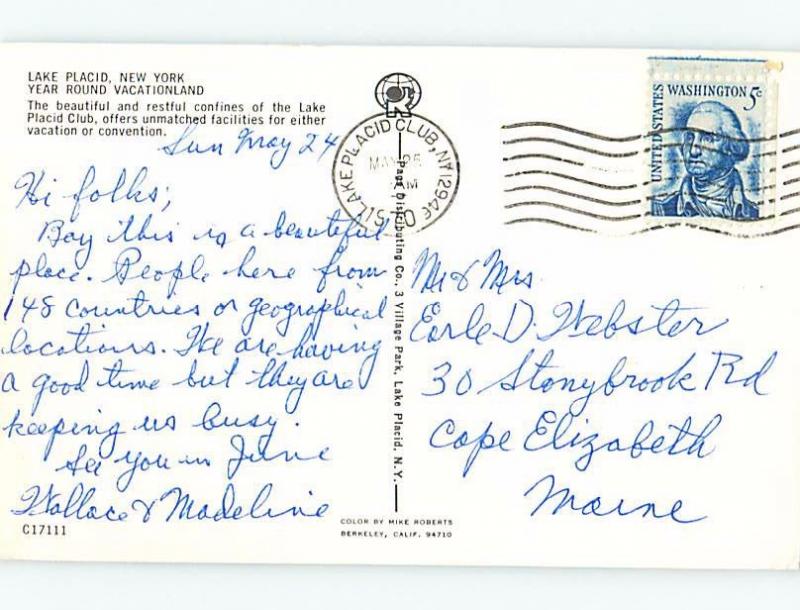 LAKE PLACID, NEW YORK
YEAR ROUND VACATIONLAND
The beautiful and restful confines of the Lake
Placid Club, offers unmatched facilities for either
vacation or convention.
Sun May 24
Hi folks;
Boy this is a beautiful
place. People here from
148 countries or geographical
locations. We are having
a good time but they are
keeping us busy.
See you in June
Wallace & Madeline
C17111
Page Distributing Co., 3 Village Park, Lake Placid, N.Y.
COLOR BY MIKE ROBERTS
BERKELEY, CALIF. 94710
LAKE PLACID CLUB, NY 12946
MAY 25
AM
UNITED STATES
WASHINGTON 5c
Mr & Mrs
Earle D. Webster
30 Stonybrook Rd
Cape Elizabeth
Maine